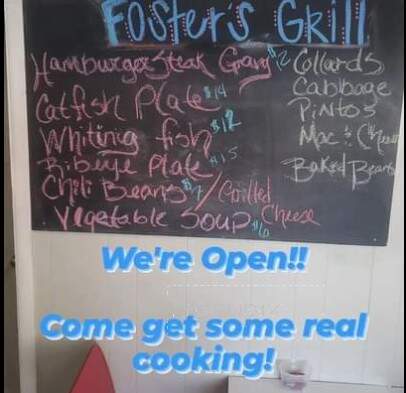 FOSTER'S GRILL
Hamburger Steak Gravy $12
Catfish Plate $14
Whiting fish $12
Ribeye Plate $15
Chili Beans $7 / Grilled Cheese
Vegetable Soup $10
Collards
Cabbage
PiNTOS
Mac & Cheese
Baked Beans
We're Open!!
Come get some real
cooking!